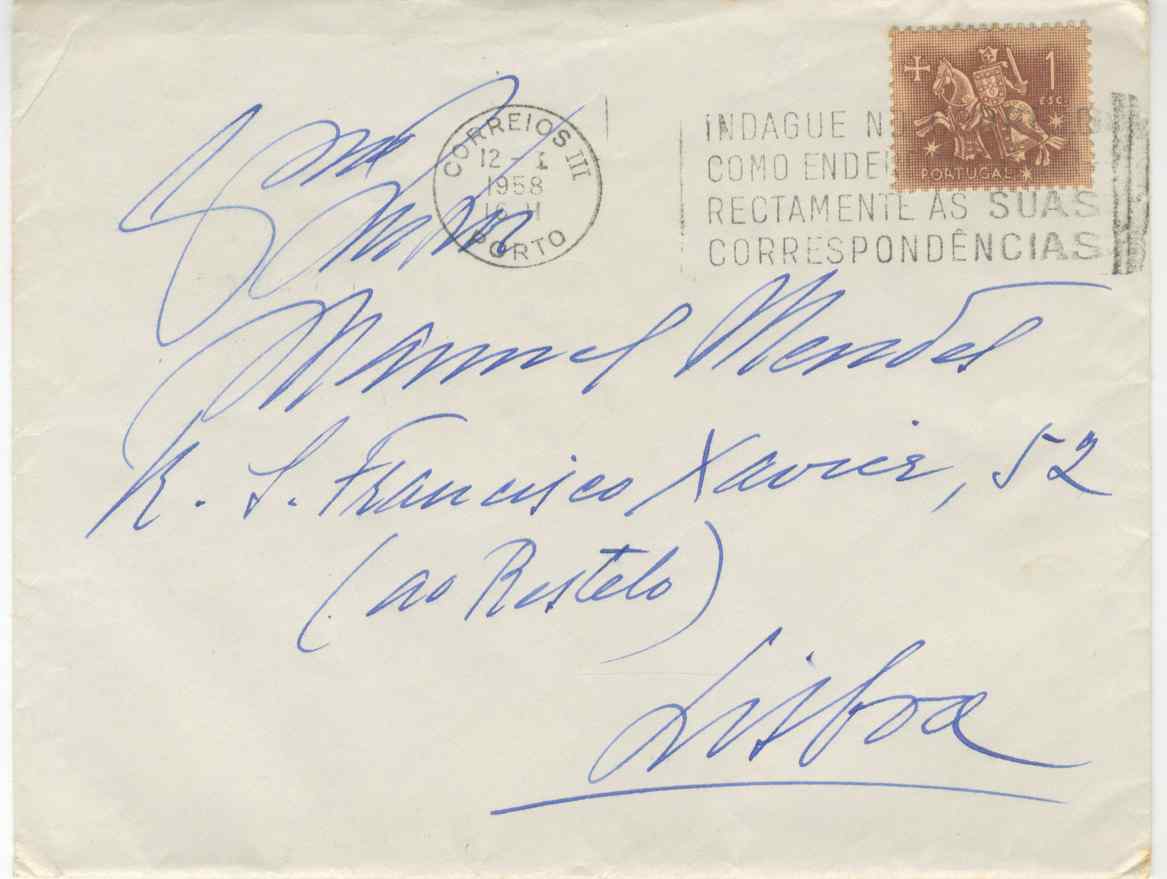 CORREIOS III
12 - I
1958
PORTO
INDAGUE N
COMO ENDE
RECTAMENTE AS SUAS
CORRESPONDÊNCIAS
1
ESC.
PORTUGAL
Manuel Mendes
R. S. Francisco Xavier, 52
(ao Restelo)
Lisboa